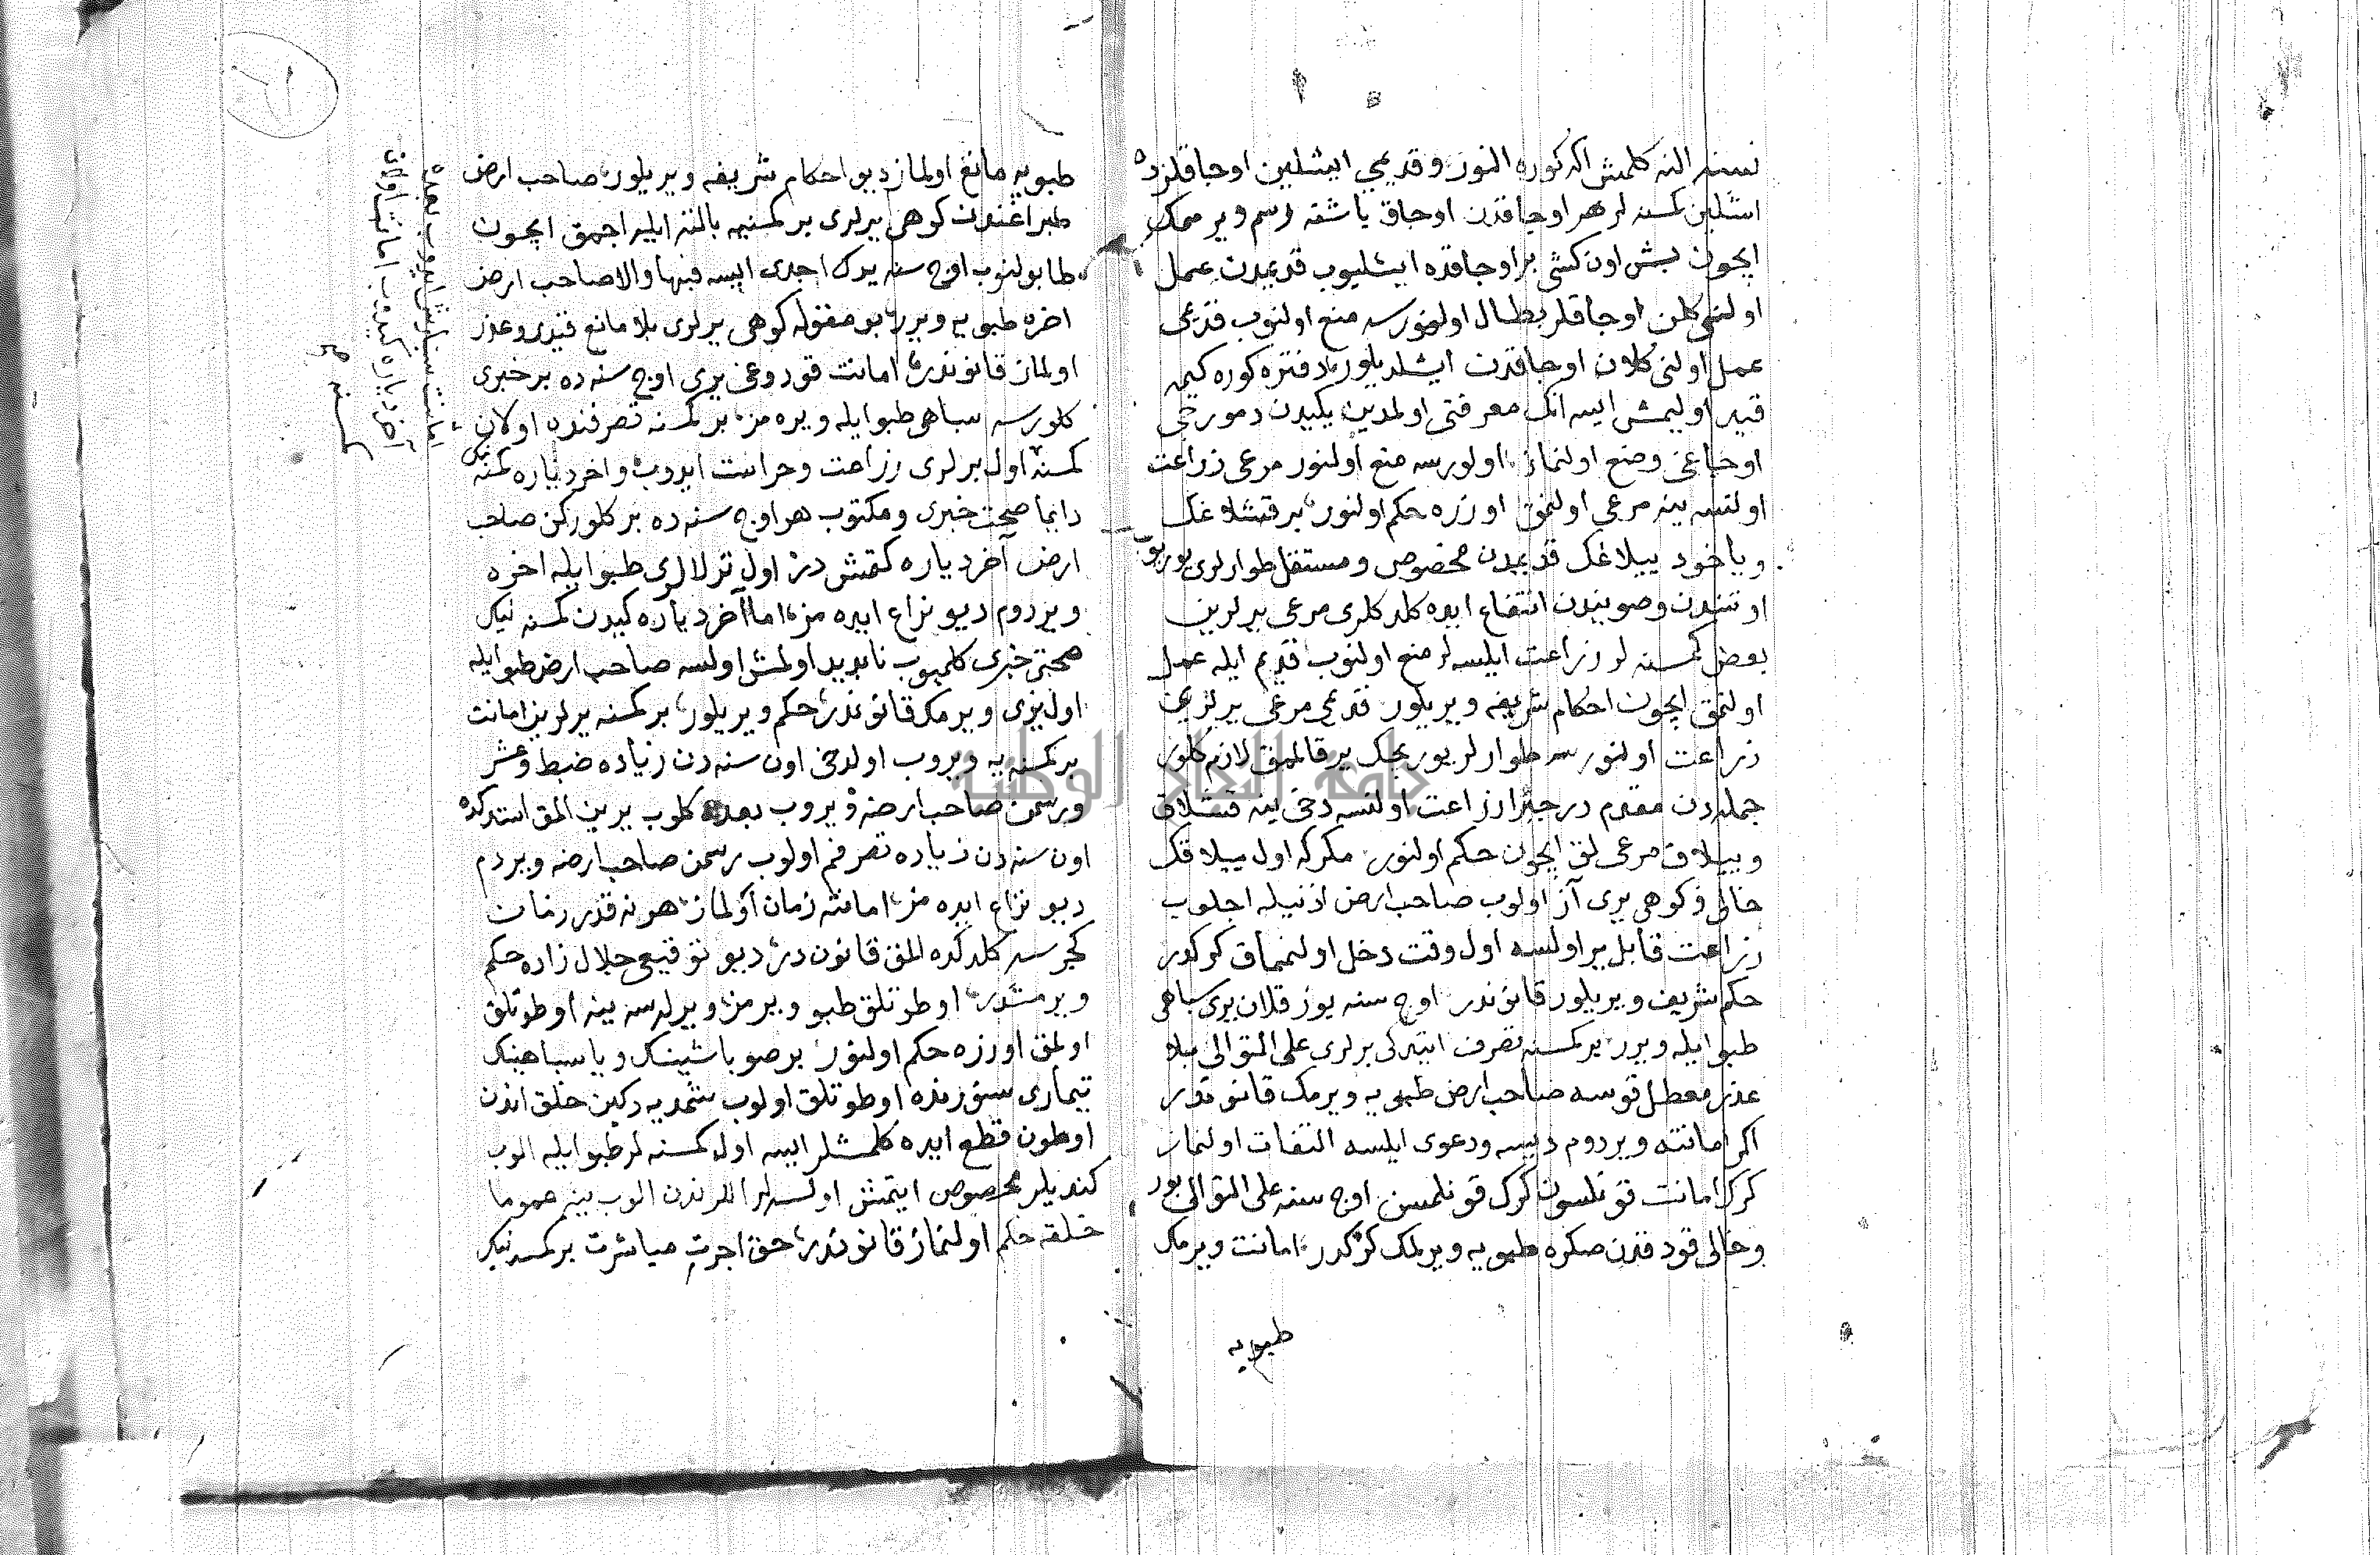 نسنه النه كلمش اكه كوره النور و قديمي ايشلين اوجاقلرده
اشلين كمسنه لر هر اوجاقدن اوجاق باشنه رسم ويرممك
ايچون بش اون كشي بر اوجاقده ايشليوب قديمدن عمل
اولنى كلن اوجاقلر بطال اولنورسه منع اولنوب قديمى
عمل اولنى كلان اوجاقدن ايشلديلور دفتره كوره كيمه
قيد اوليمش ايسه انك معرفتى اولمدين يكيدن دمورجى
اوجاغى وضع اولنماز اولورسه منع اولنور مرعى زراعت
اولنسه ينه مرعى اولنمق اوزره حكم اولنور بر قشلاغك
و ياخود ييلاغك قديمدن مخصوص و مستقل طوارلرى يوريوب
اوتندن و صويندن انتفاع ايده كلدكلرى مرعى يرلرين
بعض كمسنه لر زراعت ايلسه لر منع اولنوب قديم ايله عمل
اولنمق ايچون احكام شريفه ويريلور قديمى مرعى يرلريمى
زراعت اولنورسه طوارلر يوريجك ير قالممق لازم كلور
جمله دن مقدم در جبرا زراعت اولنسه دخى ينه قشلاق
و ييلاق مرعى لق ايچون حكم اولنور مكر كه اول ييلاقك
خالى و كوهى يرى آز اولوب صاحب ارض اذنيله اجلوب
زراعت قابل ير اولسه اول وقت دخل اولنمماق كركدر
حكم شريف ويريلور قانوندر اوج سنه بوز قلان يرى سباهى
طبو ايله ويرر بر كمسنه تصرف ايتدكى يرلرى على التوالى بلا
عذر معطل قوسه صاحب ارض طبويه ويرمك قانوندر
اكر امانته ويردوم ديسه و دعوى ايلسه التفات اولنماز
كرك امانت قونلسون كرك قونلمسن اوج سنه على التوالى بور
و خالى قودقدن صكره طبويه ويرلمك كركدر امانت ويرمك
طبويه
طبويه مانع اولماز ديو احكام شريفه ويريلور صاحب ارض
طبراغندن كوهى يرلرى بر كمسنيه بالته ايله اجمق ايچون
طابولنوب اوج سنه يدك اجدى ايسه فبها والا صاحب ارض
اخره طبويه ويرر بو مقوله كوهى يرلرى بلا مانع قيدى و عذر
اولماز قانوندر امانت قودوغى يرى اوج سنه ده بر خبرى
كلورسه سباهى طبو ايله ويره مز بر كمسنه تصرفنده اولان
كمسنه اول يرلرى زراعت و حراست ايدوب و اخر دياره كمسنه نك
دايما صحت خبرى و مكتوب هر اوج سنه ده بر كلوركن صاحب
ارض آخر دياره كتمش در اول ترلالرى طبو ايله اخره
ويردوم ديو نزاع ايده مز اما آخر دياره كيدن كمسنه نيك
صحتى خبرى كلميوب نابديد اولمش اولسه صاحب ارض طبو ايله
اول يرى ويرمك قانوندر حكم ويريلور بر كمسنه يرلرين امانت
بر كمسنه يه ويروب اولدخى اون سنه دن زياده ضبط و عشر
و رسمن صاحب ارضه ويروب بعده كلوب يرين المق استدكده
اون سنه دن زياده تصرفم اولوب رسمن صاحب ارضه ويردم
ديو نزاع ايده مز امانته زمان اولماز هر نه قدر زمان
كجرسه كلدكده المق قانون در ديو توقيعى جلال زاده حكم
ويرمشدر اوطوتلق طبو ويرمز ويرلرسه ينه اوطوتلق
اولمق اوزره حكم اولنور بر صوباشينك و يا سباهينك
تيمارى سنورنده اوطوتلق اولوب شمديه دكين خلق اندن
اوطون قطع ايده كلمشلر ايسه اول كمسنه لر طبو ايله الوب
كنديلر مخصوص ايتمش اولسه لر اللرندن الوب ينه عموما
خلقه حكم اولنماز قانوندر حق اجرت مباشرت بر كمسنه نيك